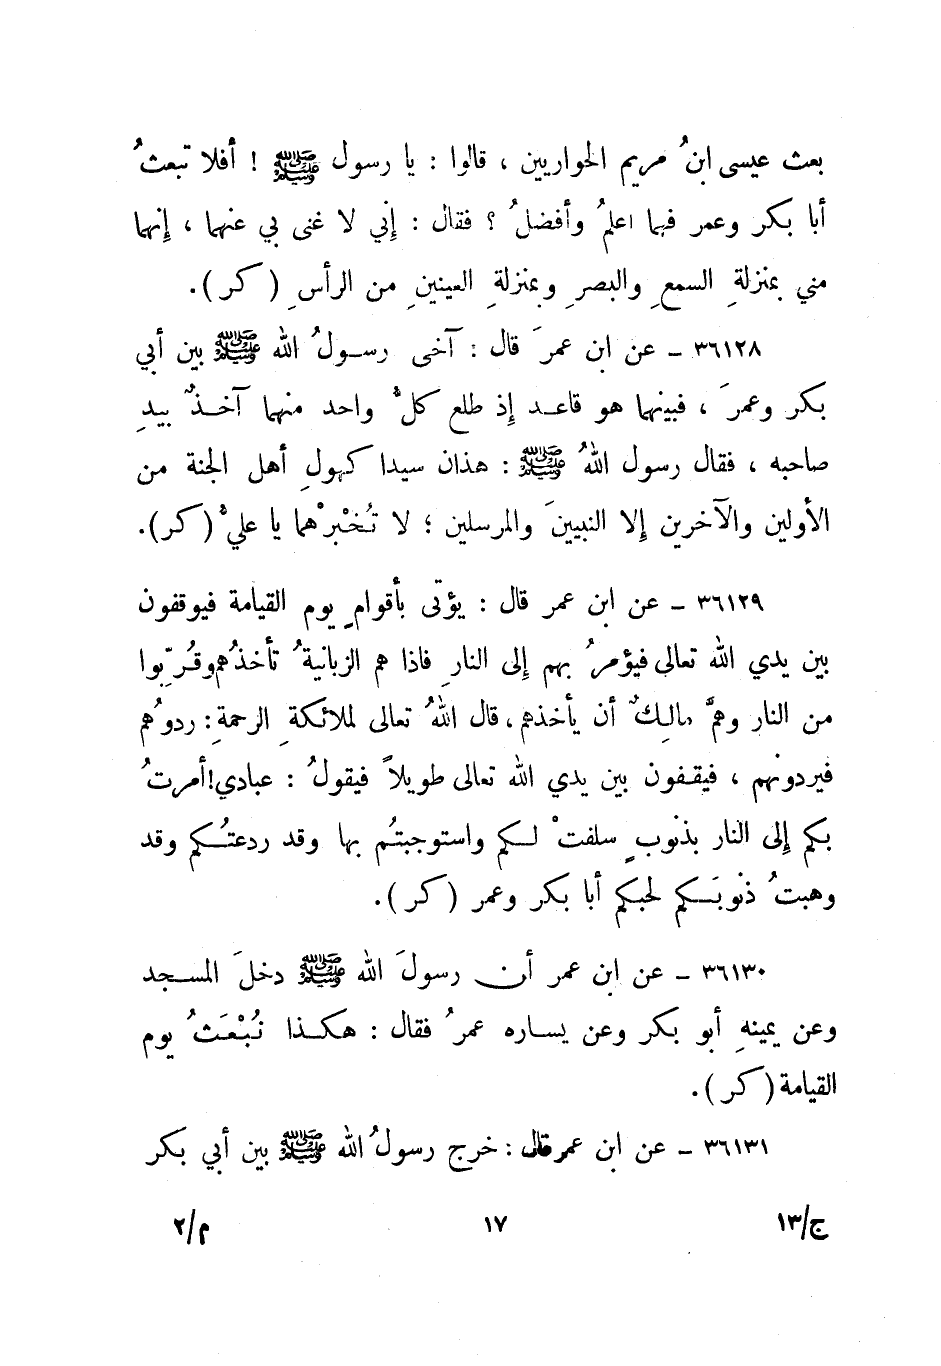 بعث عيسى ابنُ مريم الحواريين ، قالوا : يا رسول ﷺ ! أفلا تبعثُ
أبا بكر وعمر فهما اعلمُ وأفضلُ ؟ فقال : إني لا غنى بي عنهما ، إنهما
مني بمنزلةِ السمعِ والبصرِ وبمنزلةِ العينينِ من الرأسِ ( كر ) .
٣٦١٢٨ ـ عن ابن عمرَ قال : آخى رسولُ الله ﷺ بين أبي
بكر وعمرَ ، فبينهما هو قاعد إذ طلع كلٌ واحد منهما آخذٌ بيدِ
صاحبه ، فقال رسول اللهُ ﷺ : هذان سيدا كهولِ أهل الجنة من
الأولين والآخرين إلا النبيينَ والمرسلين ؛ لا تُخْبرْهما يا عليٌ ( كر ) .
٣٦١٢٩ ـ عن ابن عمر قال : يؤتى بأقوامٍ يوم القيامة فيوقفون
بين يدي الله تعالى فيؤمرُ بهم إلى النارِ فاذا هم الزبانيةُ تأخذُهم وقُرِّبوا
من النار وهمَّ مالِكٌ أن يأخذهم ، قال اللهُ تعالى لملائكةِ الرحمةِ : ردوُهم
فيردونهم ، فيقفون بين يدي الله تعالى طويلاً فيقولُ : عبادي ! أمرتُ
بكم إلى النار بذنوبٍ سلفتْ لكم واستوجبتُم بها وقد ردعتُكم وقد
وهبتُ ذنوبَكم لحبكم أبا بكر وعمر ( كر ) .
٣٦١٣٠ ـ عن ابن عمر أن رسولَ الله ﷺ دخلَ المسجد
وعن يمينهِ أبو بكر وعن يساره عمرُ فقال : هكذا نُبْعَثُ يوم
القيامة ( كر ) .
٣٦١٣١ ـ عن ابن عمر قال : خرج رسولُ الله ﷺ بين أبي بكر
ج/١٣ ١٧ م/٢